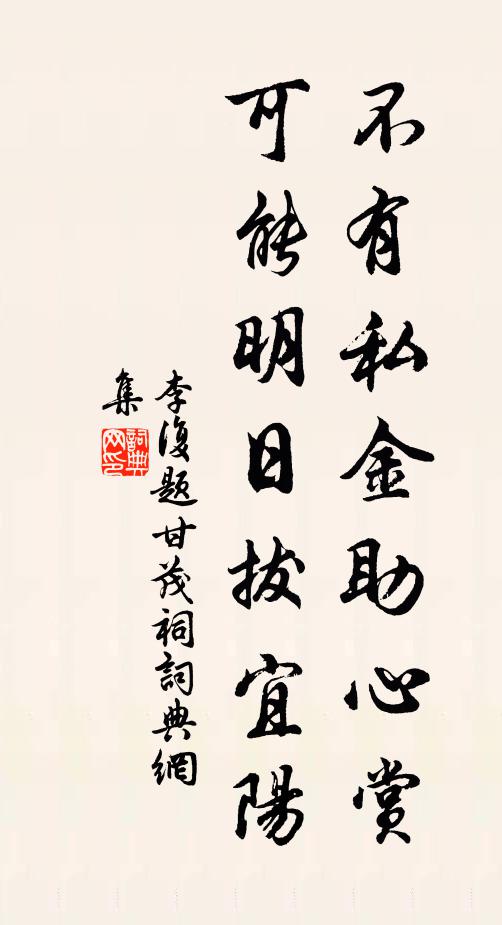 不有私金助心賞
可能明日拔宜陽
李復題甘茂祠詞典網
集
詞典
网印